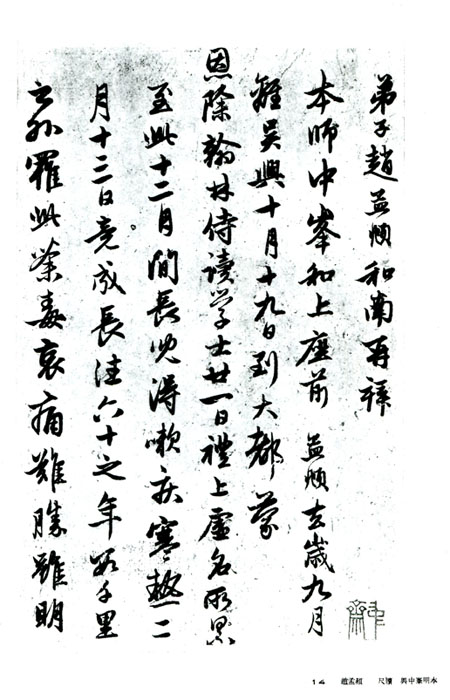 弟子趙孟頫和南再拜
本師中峯和上座前 孟頫去歲九月
離吳興十月十九日到大都蒙
恩除翰林侍讀学士廿一日禮上虛名所累
至此十二月間長兒得嗽疾寒熱二
月十三日竟成長往六十之年數千里
之外罹此荼毒哀痛難勝雖明
14 趙孟頫 尺牘 與中峯明本